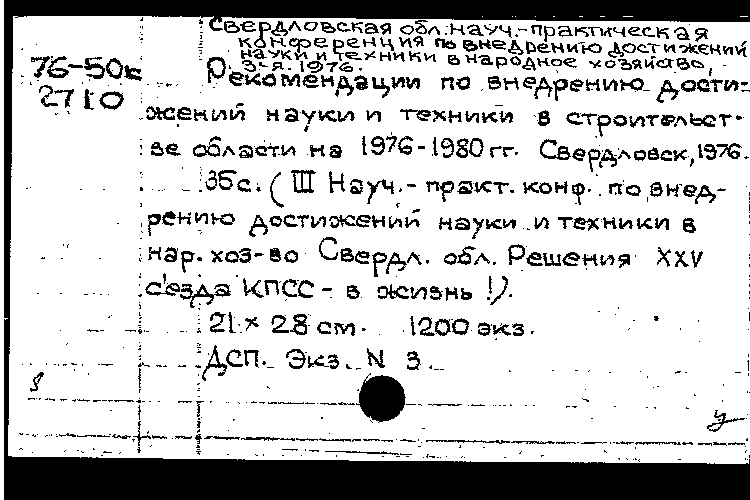 Свердловская обл. науч.-практическая
конференция по внедрению достижений
науки и техники в народное хозяйство,
3-я. 1976.
76-50к
2710
Рекомендации по внедрению дости-
жений науки и техники в строительст-
ве области на 1976-1980 гг. Свердловск, 1976.
35с. (III Науч.- практ. конф. по внед-
рению достижений науки и техники в
нар. хоз-во Свердл. обл. Решения XXV
с'езда КПСС - в жизнь!).
21 × 28 см. 1200 экз.
ДСП. Экз. N 3.
у